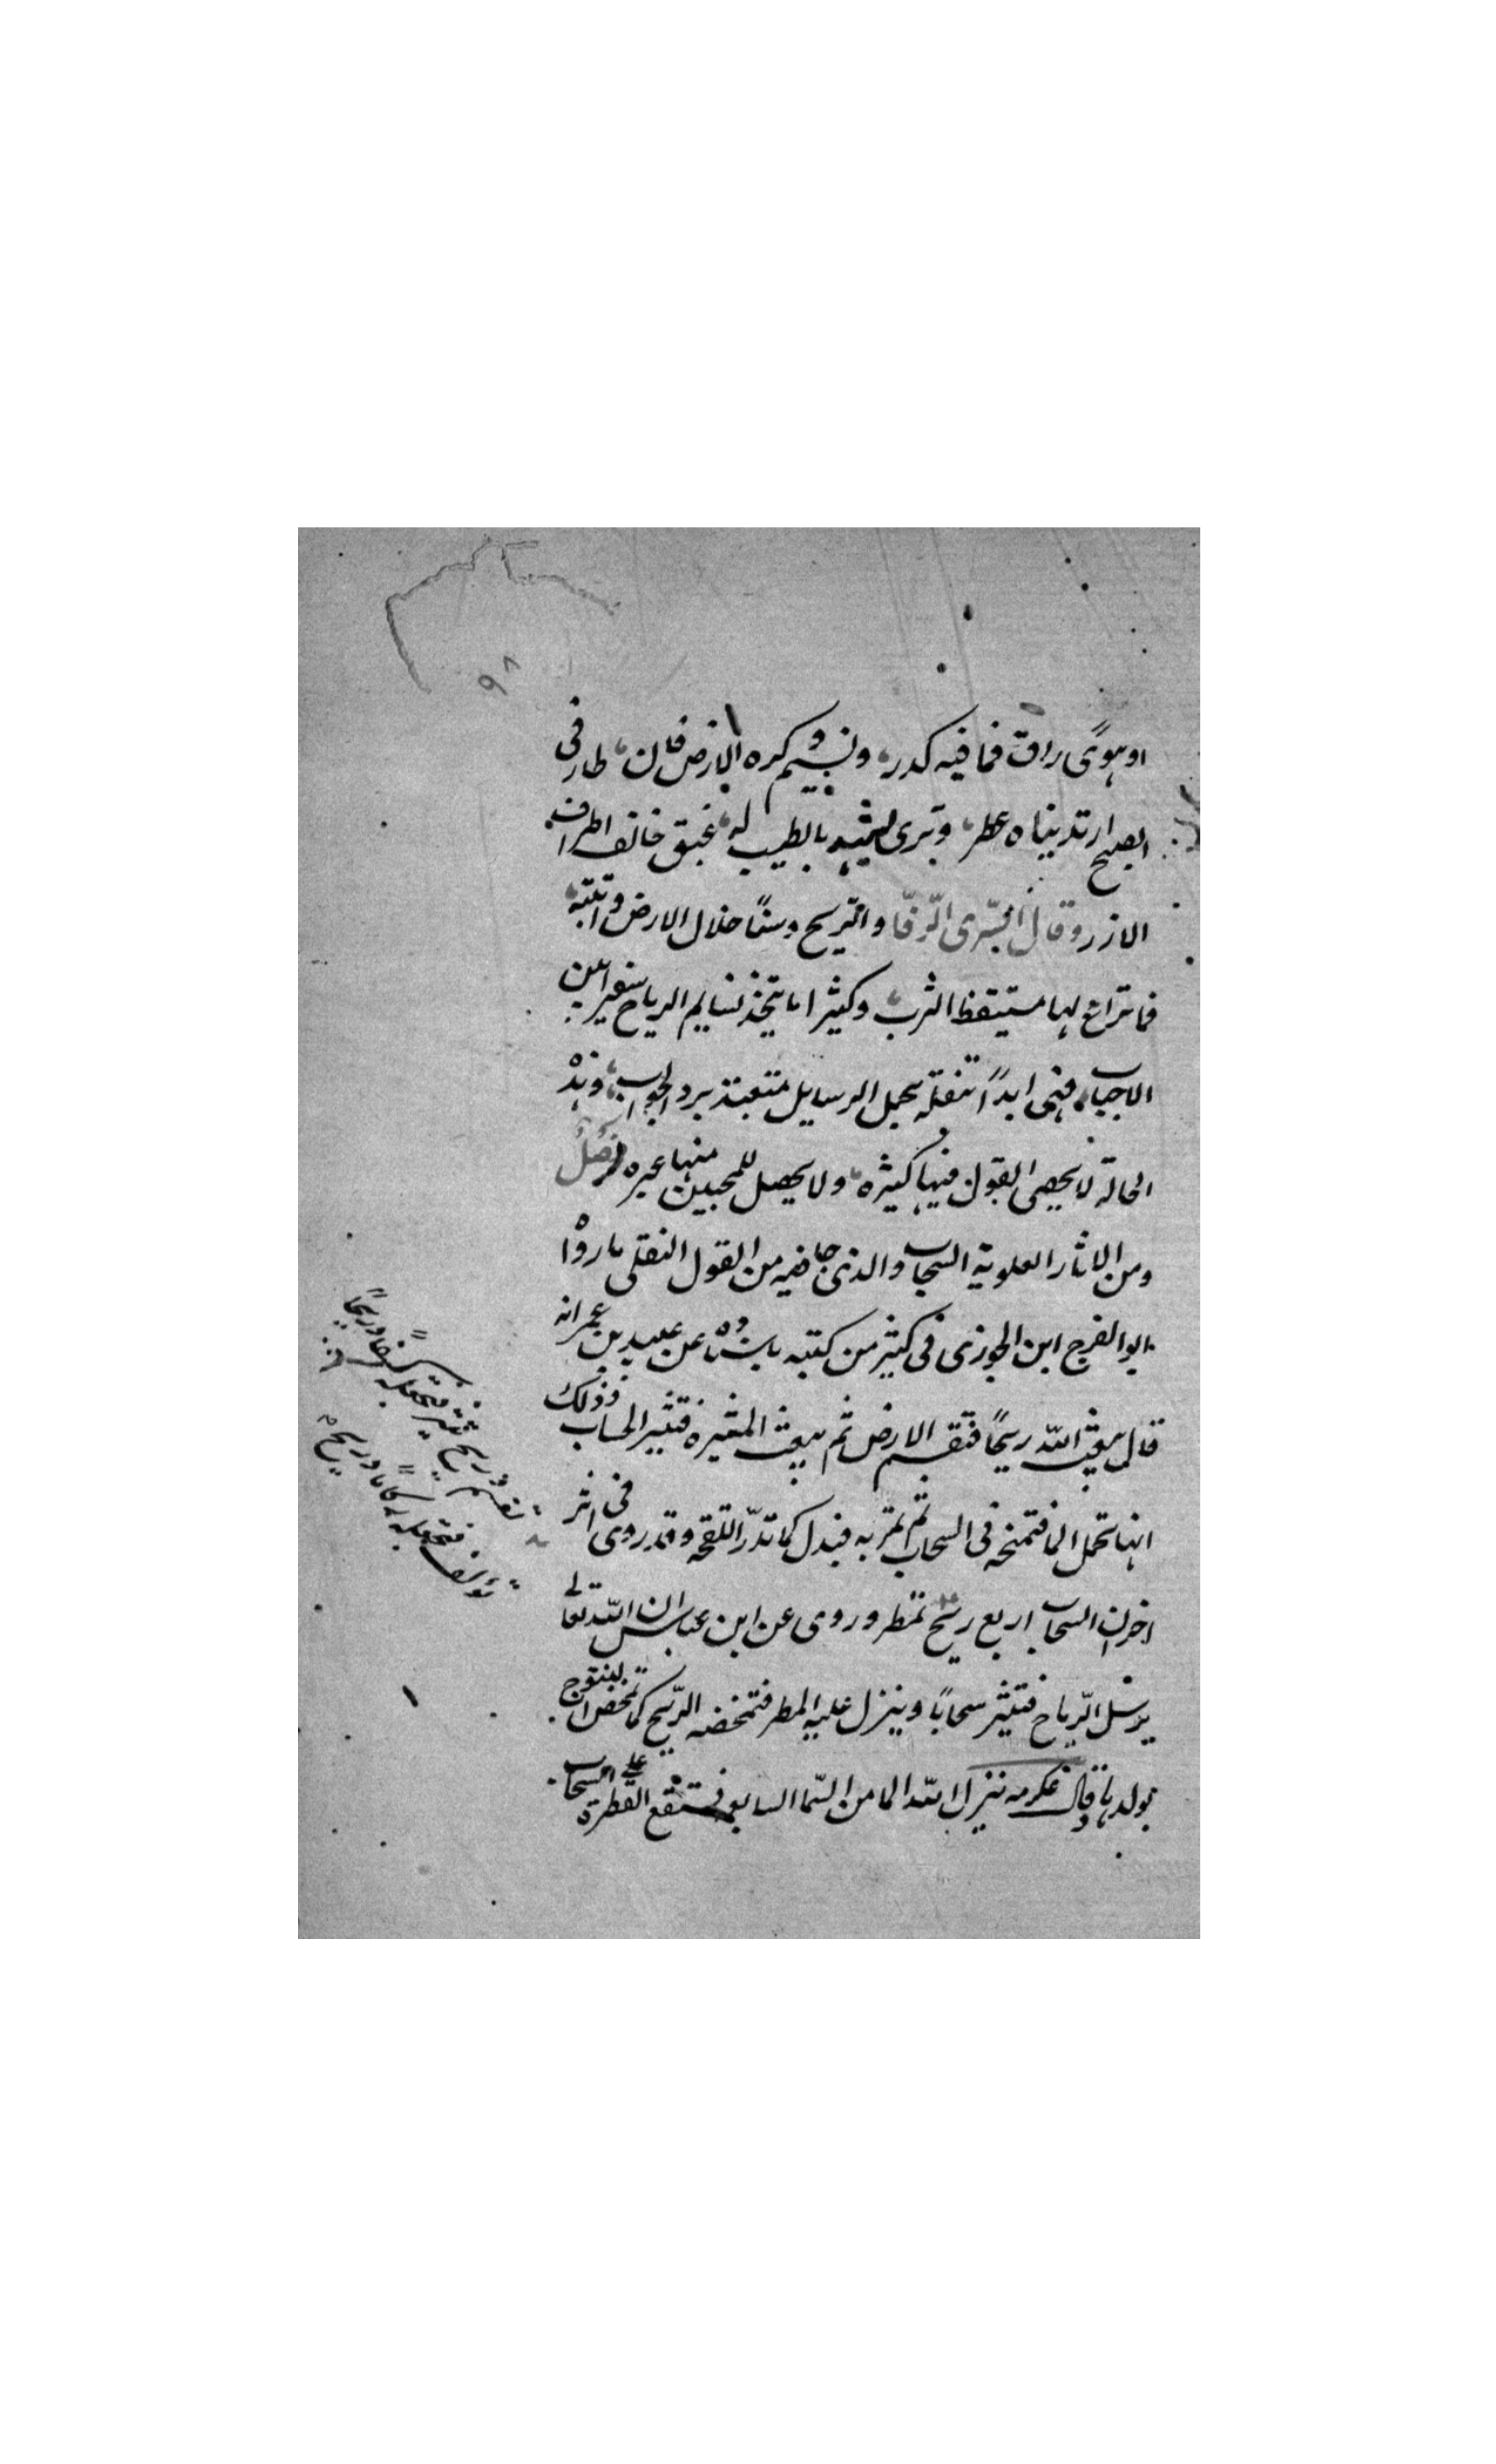 ٩٨
اوهوًى راق فما فيه كدر، ونسيم كره الارض فان، طار فى
الصبح ارتديناه عطر، وترى بالطيب له، عبق خانف اطراف
الازر وقال السّرى الرّفّا والرّيح وسنًا خلال الارض وانتبه،
فما تراع لها مستيقظ الترب، وكثيرا ما يتخذ نسايم الرياح سفيرا بين
الاحباب، فهى ابدًا تنفله بحمل الرسايل متعبة برد الجواب، وهذه
الحالة لا يحصى القول فيها كثيره، ولا يحصل للمحبين منها غيره فصل
ومن الاثار العلوية السحاب والذى جا فيه من القول النقلى ما رواه
ابو الفرج ابن الجوزى فى كثير من كتبه باسناده عن عبيد بن عمر انه
قال يبعث الله ريحًا فتقم الارض ثم يبعث المثيره فتثير السحاب فذلك
انها تحمل الما فتمنحه فى السحاب ثم تمر به فيدل كما تدرّ اللقحة وقد روى فى اثر
اخران السحاب اربع ريح تمطر وروى عن ابن عباس ان الله تعالى
يرسل الرّياح فتثير سحابًا وينزل عليه المطر فتمخضه الرّيح كما تمخض النتوج
بولدها وقال عكرمه ينزل الله الما من السّما السابعه فتقع القطرة على السحاب
تقم وريح تثير فتجعله كسفا وريحًا
تؤلف فتجعله ركامًا وريح